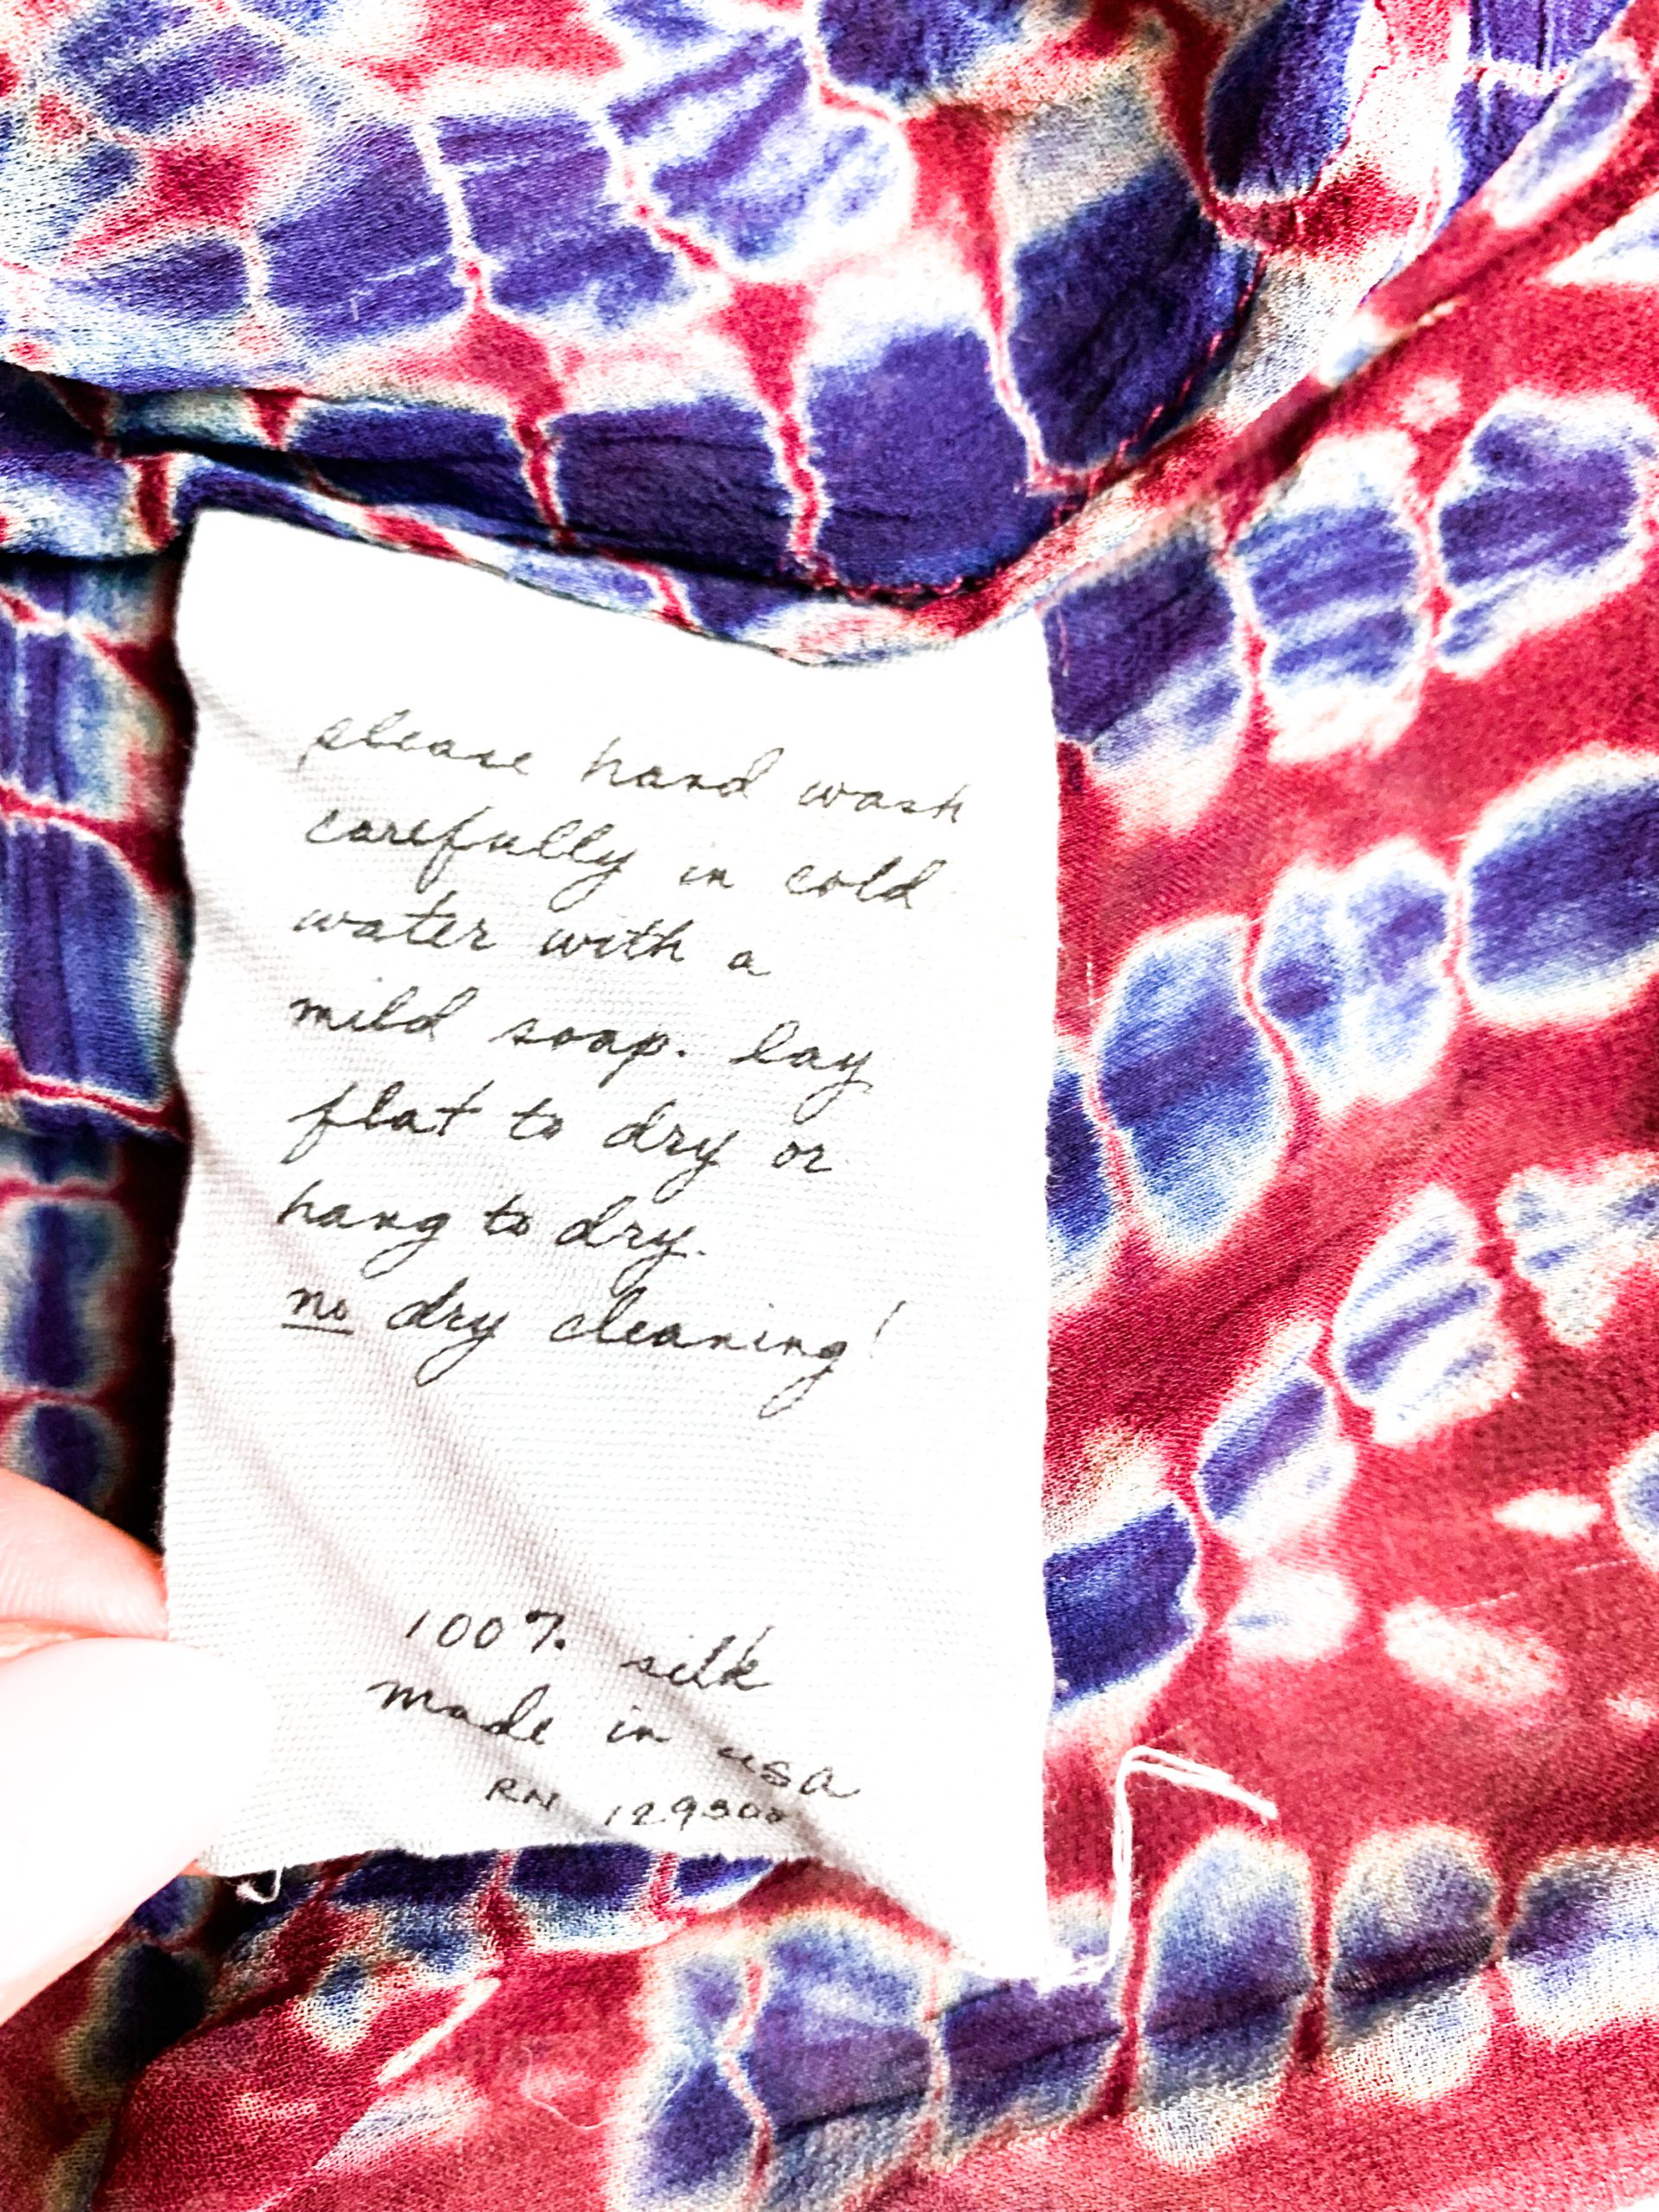 please hand wash
carefully in cold
water with a
mild soap. lay
flat to dry or
hang to dry.
no dry cleaning!
100% silk
made in usa
RN 129300